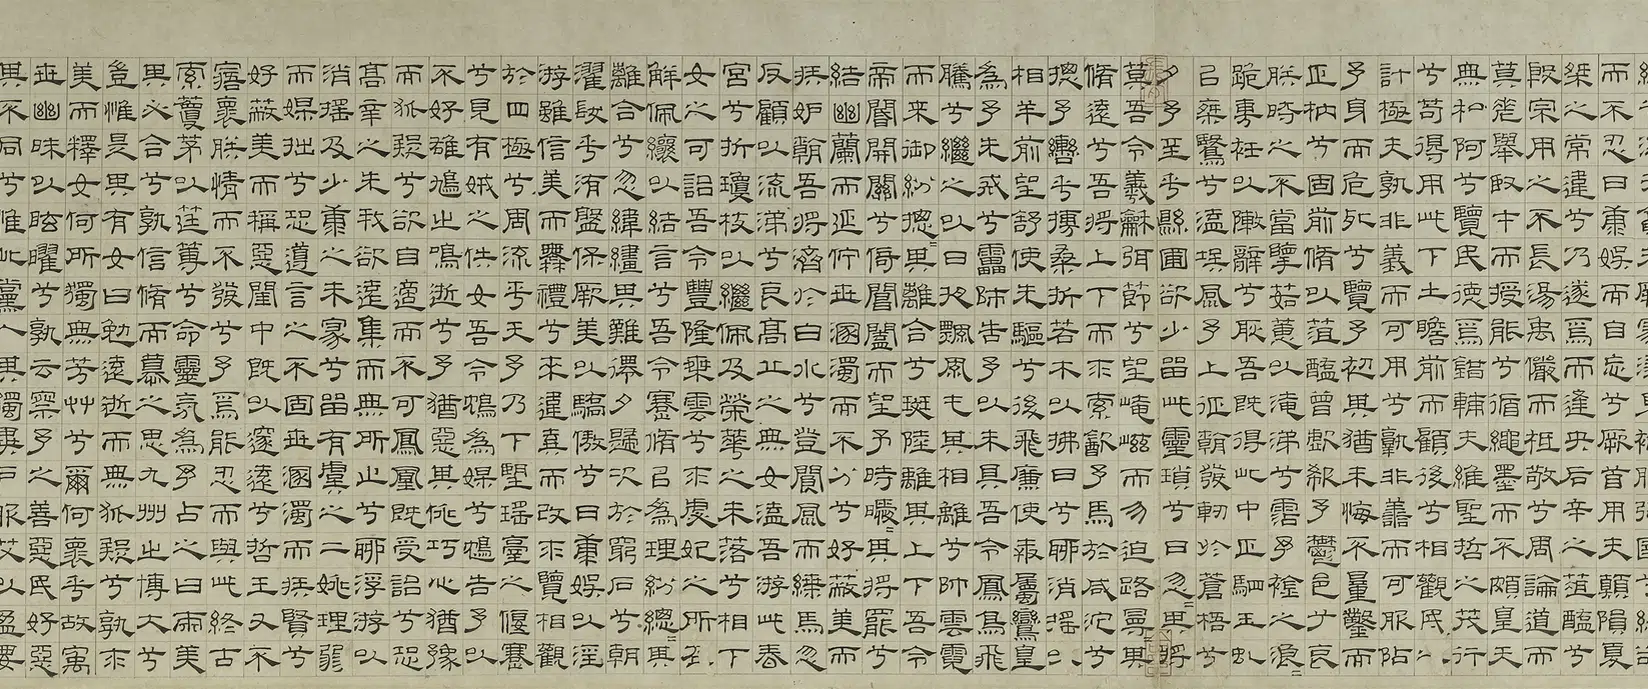 而不忍曰康娛而自忘兮厥首用夫顛隕夏
桀之常違兮乃遂焉而逢央后辛之菹醢兮
殷宗用之不長湯禹儼而祗敬兮周論道而
莫差舉臤才而授能兮循繩墨而不頗皇天
無私阿兮覽民德焉錯輔夫維聖哲之茂行
兮苟得用此下土瞻前而顧後兮相觀民之
計極夫孰非義而可用兮孰非善而可服阽
予身而危死兮覽予初其猶未悔不量鑿而
正枘兮固前脩以菹醢曾歔欷予鬱邑兮哀
朕時之不當擥茹蕙以淹涕兮霑予襟之浪=
跪專衽以陳辭兮耿吾既得此中正駟玉虬
以乘鷖兮溘埃風予上征朝發軔於蒼梧兮
夕予至乎縣圃欲少留此靈瑣兮日忽=其將
莫吾令羲龢弭節兮望崦嵫而勿迫路曼=其
脩遠兮吾將上下而求索飲予馬於咸池兮
摠予轡乎扶桑折若木以拂日兮聊消搖以
相羊前望舒使先驅兮後飛廉使奔屬鸞皇
為予先戒兮靁師告予以未具吾令鳳鳥飛
騰兮繼之以日夜飄風屯其相離兮帥雲霓
而來御紛摠=其離合兮斑陸離其上下吾令
帝閽開關兮倚閶闔而望予時曖=其將罷兮
結幽蘭而延佇世溷濁而不分兮好蔽美而
嫉妒朝吾將濟於白水兮登閬風而緤馬忽
反顧以流涕兮哀高丘之無女溘吾游此春
宮兮折瓊枝以繼佩及榮華之未落兮相下
女之可詒吾令豐隆乘雲兮求虙妃之所在
解佩纕以結言兮吾令蹇脩以為理紛總=其
離合兮忽緯繣其難遷夕歸次於窮石兮朝
濯髮乎洧盤保厥美以驕傲兮日康娛以淫
游雖信美而無禮兮來違棄而改求覽相觀
於四極兮周流乎天予乃下望瑤臺之偃蹇
兮見有娀之佚女吾令鴆為媒兮鴆告予以
不好雄鳩之鳴逝兮予猶惡其佻巧心猶豫
而狐疑兮欲自適而不可鳳凰既受詒兮恐
高辛之先我欲遠集而無所止兮聊浮游以
消搖及少康之未家兮留有虞之二姚理弱
而媒拙兮恐道言之不固世溷濁而嫉賢兮
好蔽美而稱惡閨中既以邃遠兮哲王又不
寤褱朕情而不發兮予焉能忍而與此終古
索藑茅以筳篿兮命靈氛為予占之曰兩美
其必合兮孰信脩而慕之思九州之博大兮
豈惟是其有女曰勉遠逝而無狐疑兮孰求
美而釋女何所獨無芳艸兮爾何褱乎故寓
世幽昧以眩曜兮孰云察予之善惡民好惡
其不同兮惟此黨人其獨異戶服艾以盈要